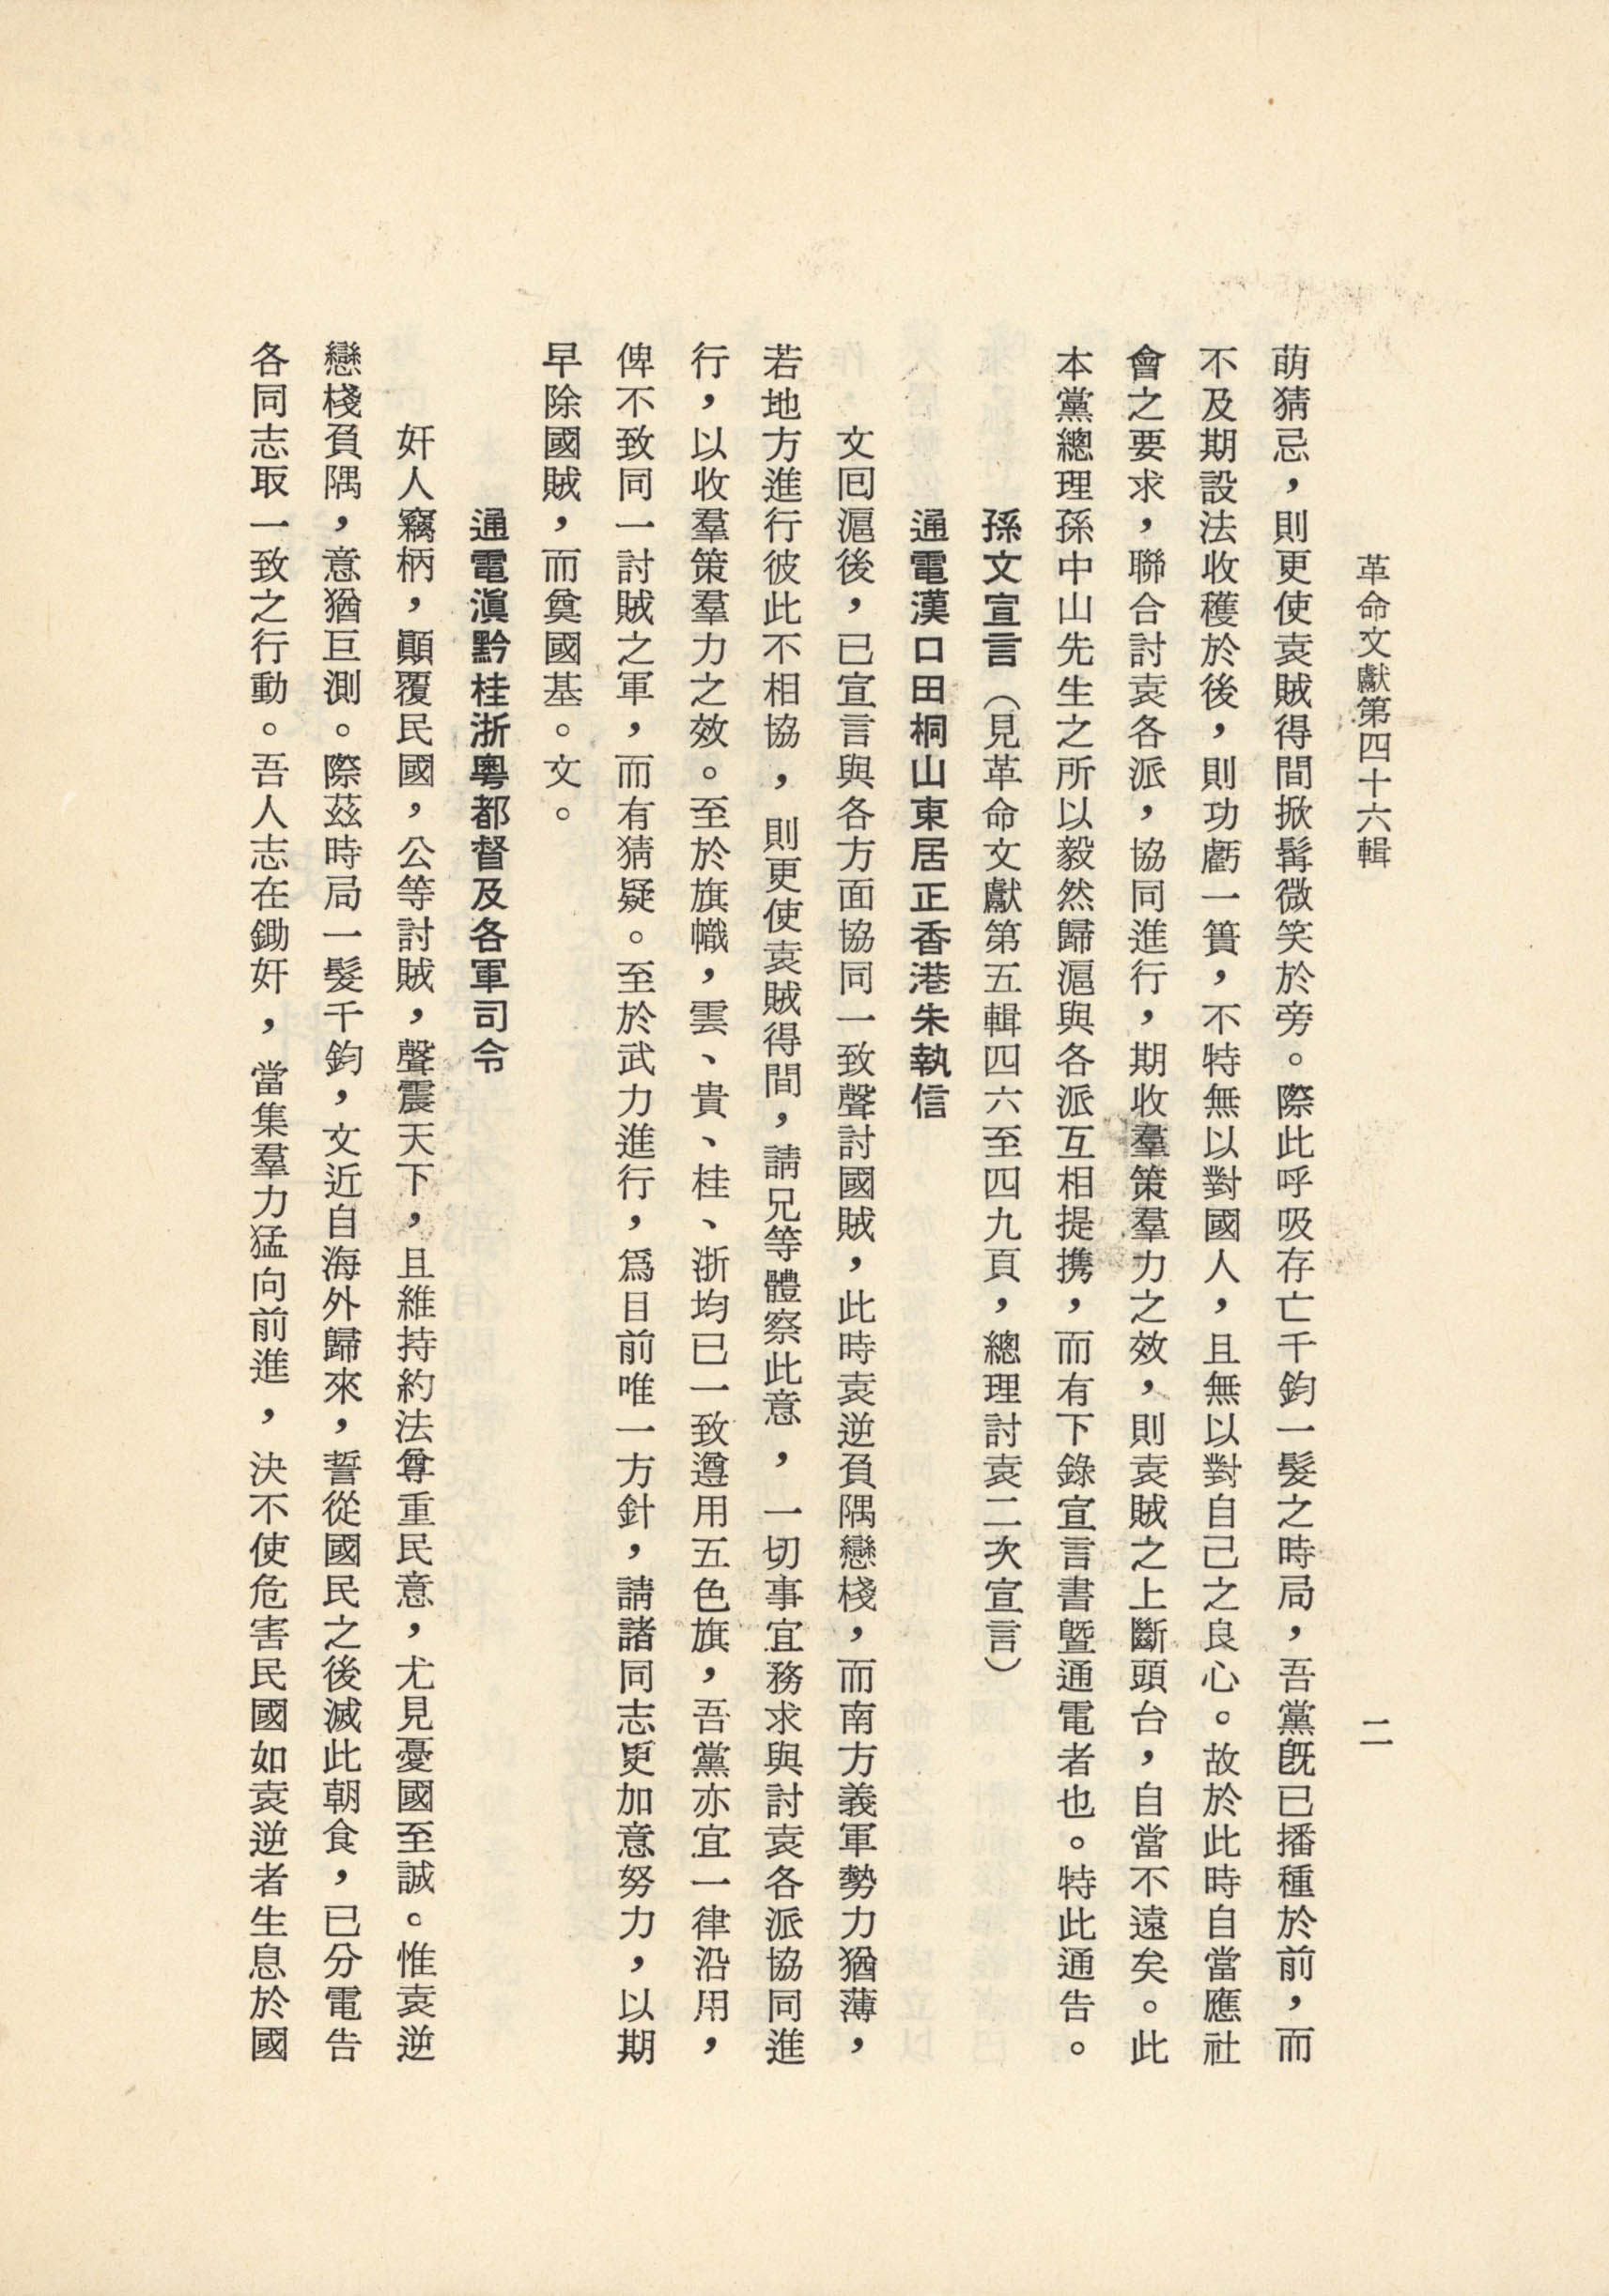 革命文獻第四十六輯
二
萌猜忌，則更使袁賊得間掀髯微笑於旁。際此呼吸存亡千鈞一髮之時局，吾黨既已播種於前，而
不及期設法收穫於後，則功虧一簣，不特無以對國人，且無以對自己之良心。故於此時自當應社
會之要求，聯合討袁各派，協同進行，期收羣策羣力之效，則袁賊之上斷頭台，自當不遠矣。此
本黨總理孫中山先生之所以毅然歸滬與各派互相提携，而有下錄宣言書暨通電者也。特此通告。
孫文宣言（見革命文獻第五輯四六至四九頁，總理討袁二次宣言）
通電漢口田桐山東居正香港朱執信
文囘滬後，已宣言與各方面協同一致聲討國賊，此時袁逆負隅戀棧，而南方義軍勢力猶薄，
若地方進行彼此不相協，則更使袁賊得間，請兄等體察此意，一切事宜務求與討袁各派協同進
行，以收羣策羣力之效。至於旗幟，雲、貴、桂、浙均已一致遵用五色旗，吾黨亦宜一律沿用，
俾不致同一討賊之軍，而有猜疑。至於武力進行，爲目前唯一方針，請諸同志更加意努力，以期
早除國賊，而奠國基。文。
通電滇黔桂浙粵都督及各軍司令
奸人竊柄，顚覆民國，公等討賊，聲震天下，且維持約法尊重民意，尤見憂國至誠。惟袁逆
戀棧負隅，意猶叵測。際茲時局一髮千鈞，文近自海外歸來，誓從國民之後滅此朝食，已分電告
各同志取一致之行動。吾人志在鋤奸，當集羣力猛向前進，決不使危害民國如袁逆者生息於國